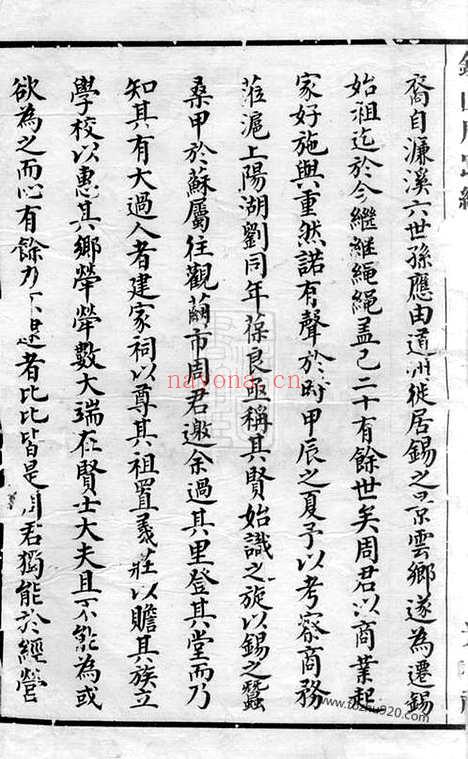 裔自濂溪六世孫應由道州徙居錫之景雲鄉遂為遷錫
始祖迄於今繼繼繩繩蓋已二十有餘世矣周君以商業起
家好施與重然諾有聲於時甲辰之夏予以考察商務
蒞滬上陽湖劉同年葆良亟稱其賢始識之旋以錫之蠶
桑甲於蘇屬往觀繭市周君邀余過其里登其堂而乃
知其有大過人者建家祠以尊其祖置義莊以贍其族立
學校以惠其鄉犖犖數大端在賢士大夫且不能為或
欲為之而心有餘力不逮者比比皆是周君獨能於經營
nayona.cn
www.fozhu920.com